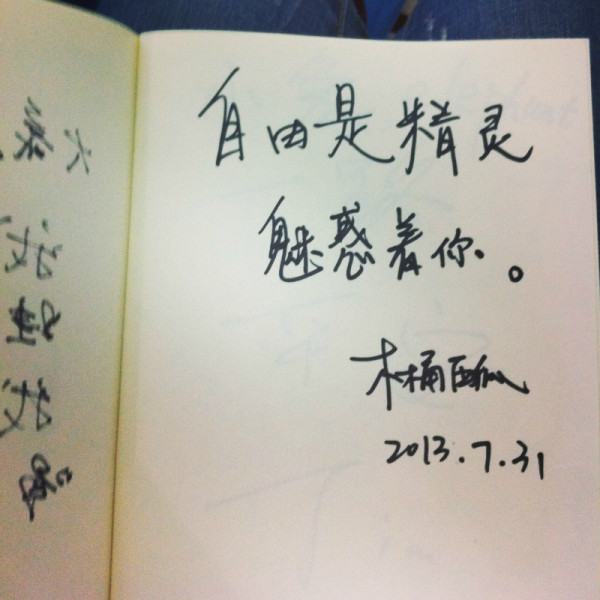 自由是精灵
魅惑着你。
木桶
2013.7.31